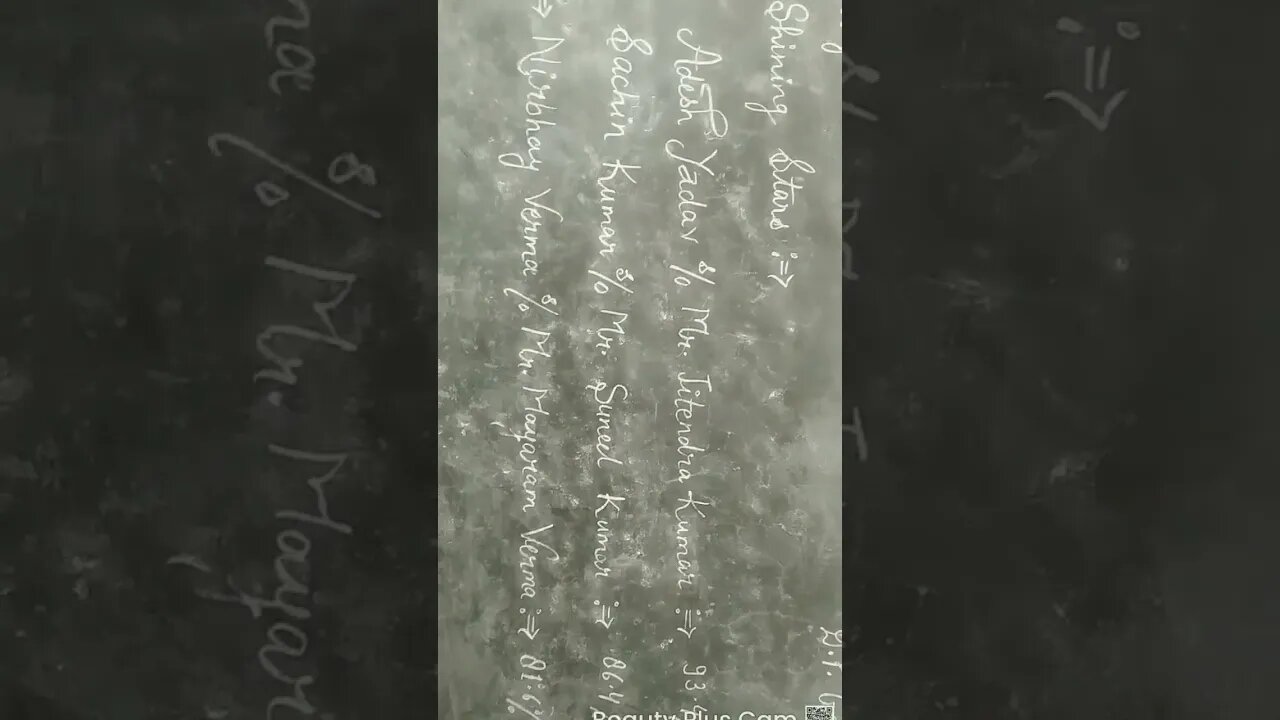 Shining Stars :⇒
Adesh Yadav S/o Mr. Jitendra Kumar :⇒ 93.
Sachin Kumar S/o Mr. Suneel Kumar :⇒ 86.4
⇒ Nirbhay Verma S/o Mr. Mayaram Verma :⇒ 81.6%
Beauty Plus Cam